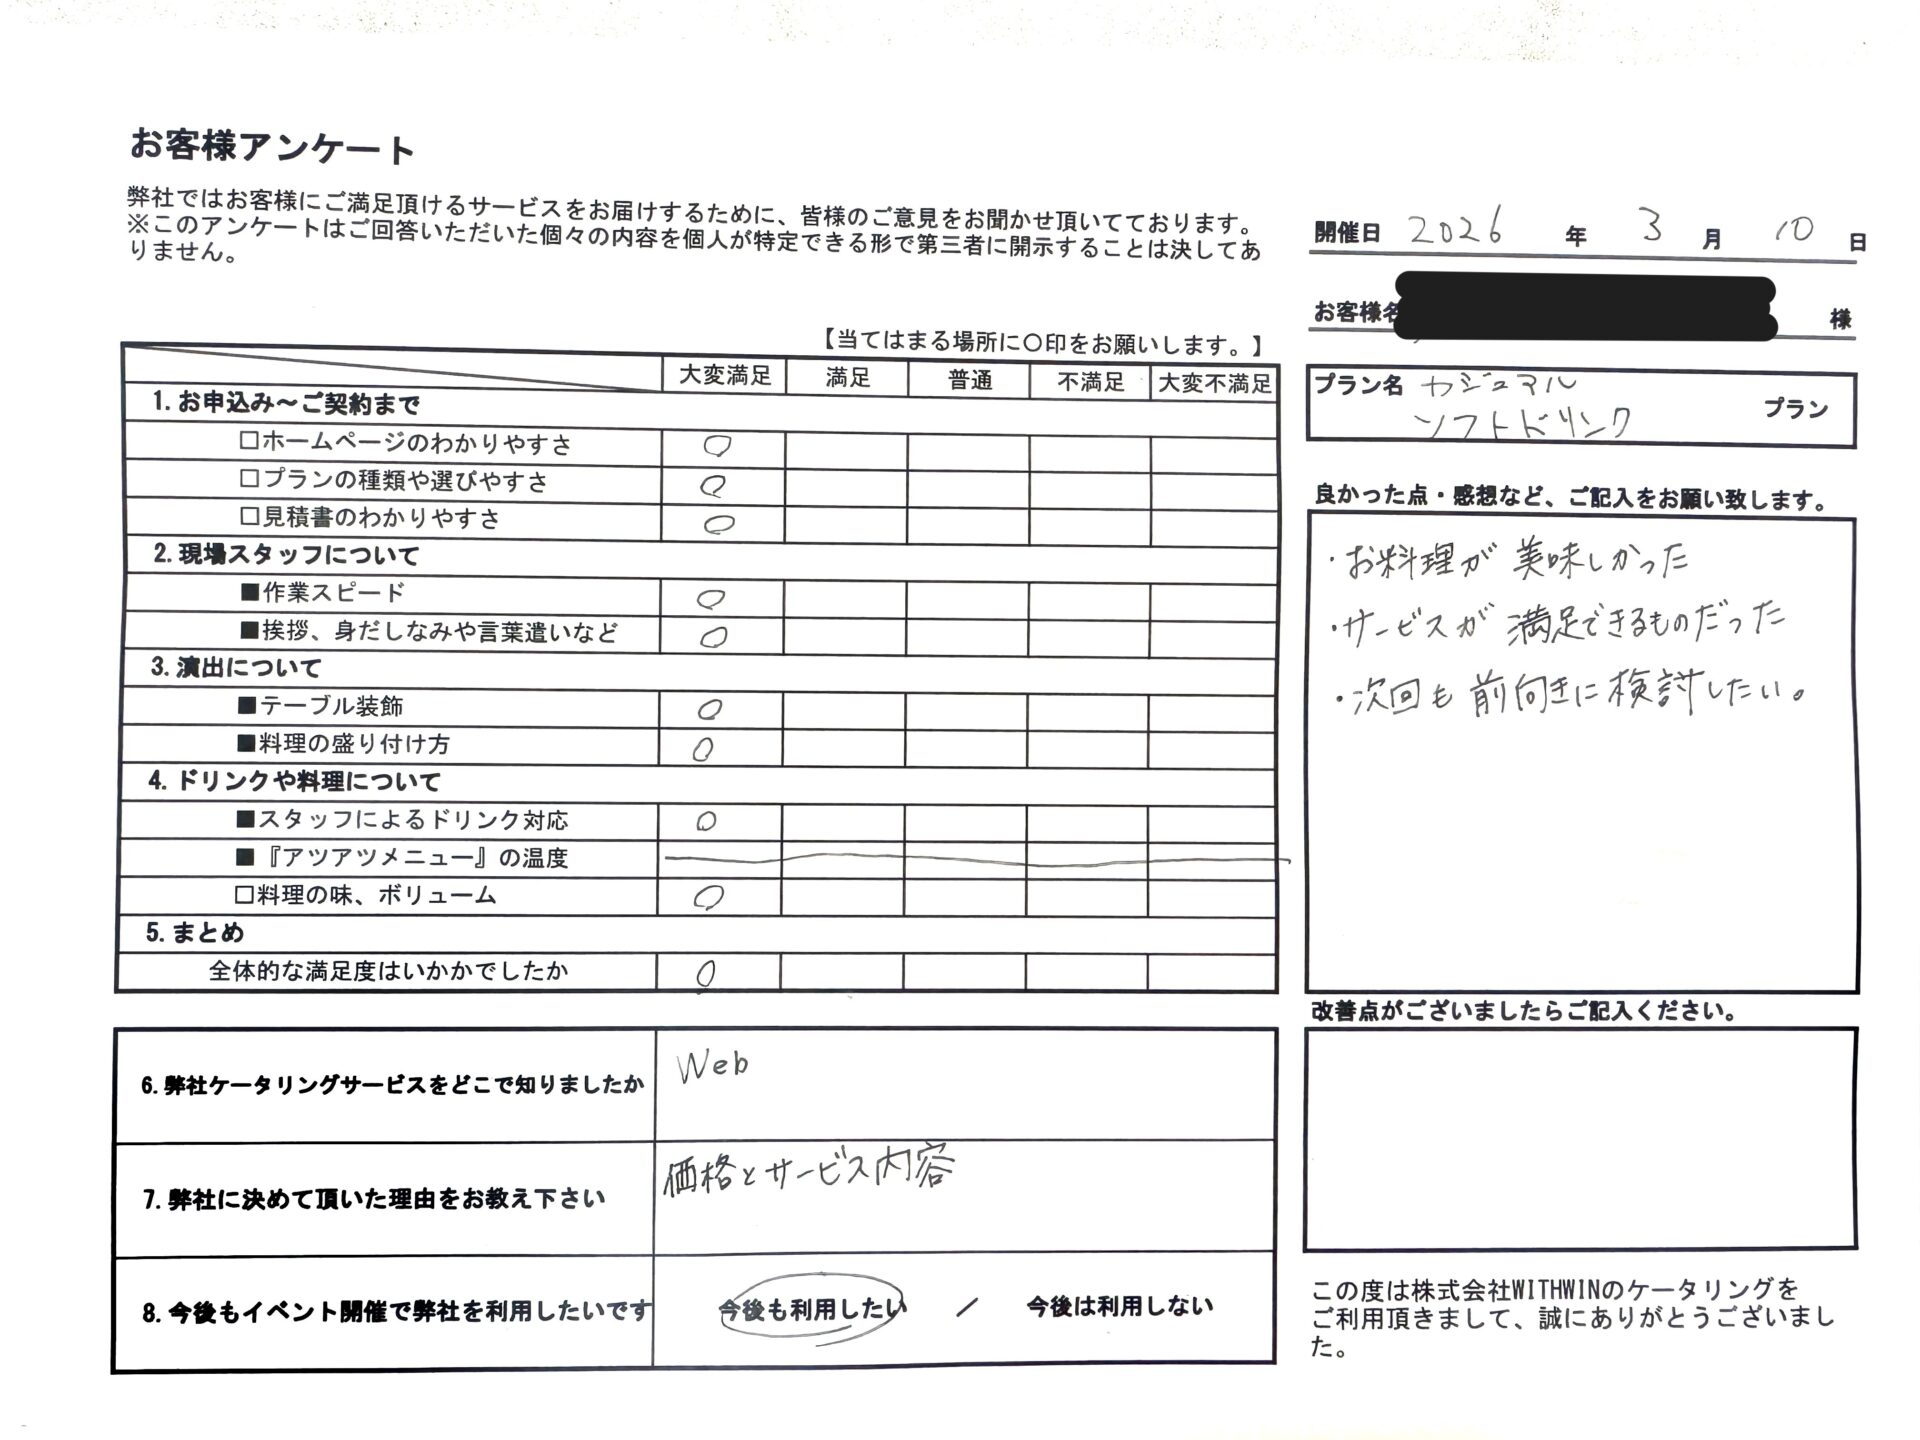 お客様アンケート
弊社ではお客様にご満足頂けるサービスをお届けするために、皆様のご意見をお聞かせ頂いてております。
※このアンケートはご回答いただいた個々の内容を個人が特定できる形で第三者に開示することは決してあ
りません。
開催日 2026 年 3 月 10 日
お客様名 様
プラン名 カジュアル
ソフトドリンク プラン
【当てはまる場所に〇印をお願いします。】
大変満足 満足 普通 不満足 大変不満足
1.お申込み～ご契約まで
□ホームページのわかりやすさ ○
□プランの種類や選びやすさ ○
□見積書のわかりやすさ ○
2.現場スタッフについて
■作業スピード ○
■挨拶、身だしなみや言葉遣いなど ○
3.演出について
■テーブル装飾 ○
■料理の盛り付け方 ○
4.ドリンクや料理について
■スタッフによるドリンク対応 ○
■『アツアツメニュー』の温度
□料理の味、ボリューム ○
5.まとめ
全体的な満足度はいかかでしたか ○
良かった点・感想など、ご記入をお願い致します。
・お料理が美味しかった
・サービスが満足できるものだった
・次回も前向きに検討したい。
改善点がございましたらご記入ください。
6.弊社ケータリングサービスをどこで知りましたか Web
7.弊社に決めて頂いた理由をお教え下さい 価格とサービス内容
8.今後もイベント開催で弊社を利用したいです 今後も利用したい ／ 今後は利用しない
この度は株式会社WITHWINのケータリングを
ご利用頂きまして、誠にありがとうございまし
た。